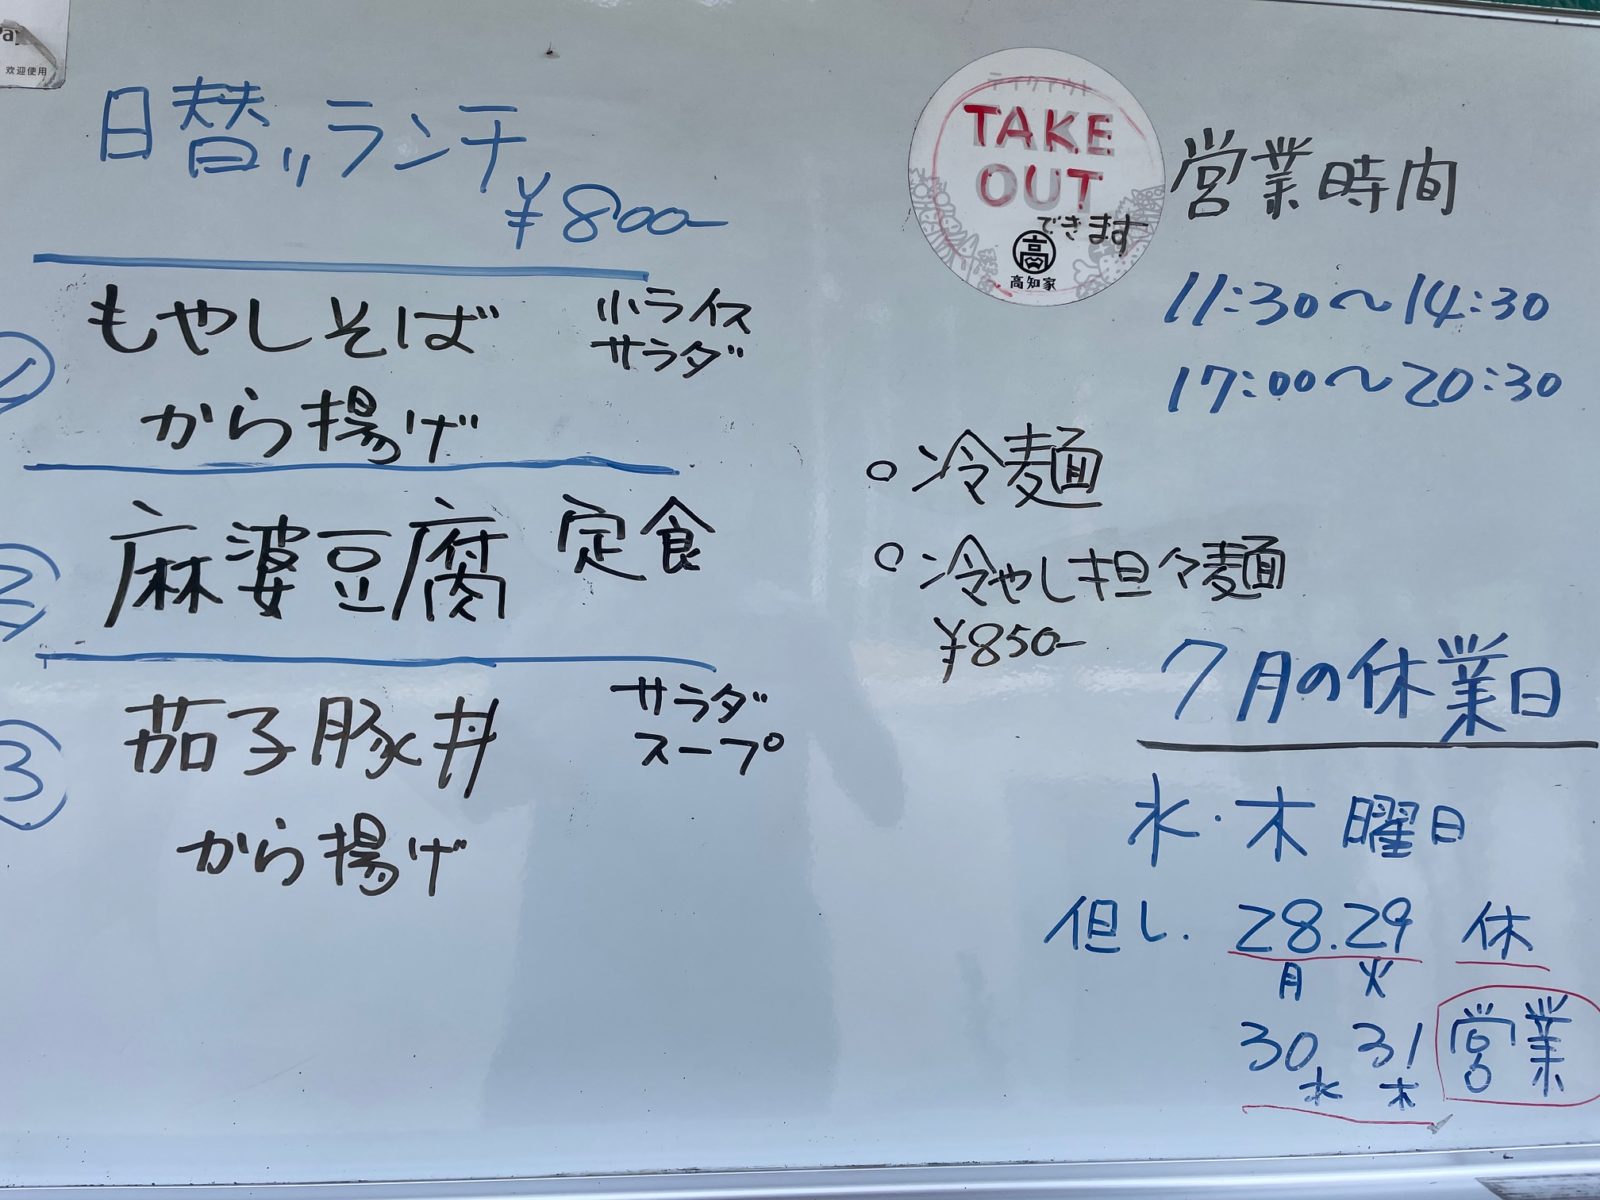 Pay
欢迎使用
日替りランチ
¥800-
① もやしそば 小ライス
サラダ
から揚げ
② 麻婆豆腐 定食
③ 茄子豚丼 サラダ
スープ
から揚げ
テイクアウト
TAKE
OUT
できます
高
高知家
営業時間
11:30〜14:30
17:00〜20:30
○冷麺
○冷やし担々麺
¥850-
7月の休業日
水・木曜日
但し. 28.29 休
月 火
30 31 営業
水 木